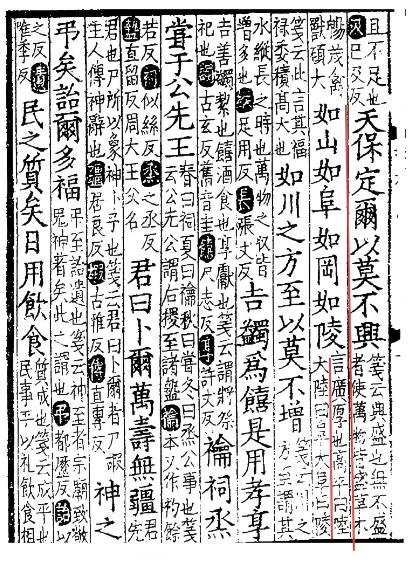 且不足也
天保定爾以莫不興箋云興盛也無不盛
者使萬物皆盛草木
暢茂禽
獸碩大如山如阜如岡如陵言廣厚也高平曰陸
大陸曰阜大阜曰陵
箋云此言其福
祿委積高大也如川之方至以莫不增箋云川之
方至謂其
水縱長之時也萬物之收皆
增多也縱足用反長張丈反吉蠲爲饎是用孝享
吉善蠲絜也饎酒食也享獻也箋云謂將祭
祀也蠲古玄反舊音圭饎尺志反享許丈反禴祠烝
嘗于公先王春曰祠夏曰禴秋曰嘗冬曰烝公事也箋
云公先公謂后稷至諸盩禴本又作礿餘
若反祠似絲反烝之丞反
盩直留反周大王父名君曰卜爾萬壽無疆君
先
君也尸所以象神卜予也箋云君曰卜爾者尸嘏
主人傳神辭也疆居良反嘏古雅反傳直專反神之
弔矣詒爾多福弔至詒遺也箋云神至者宗廟致敬
鬼神著矣此之謂也弔都歷反詒以
之反遺
唯季反民之質矣日用飲食質成也箋云成平也
民事平以礼飲食相